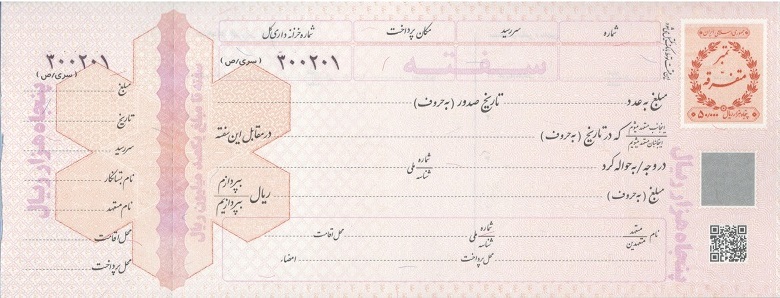 شماره سررسید مکان پرداخت شماره خزانه داری کل
سفته
۳۰۰۲۰۱ (سری/ص)
تمبر
متفرقه
۵۰/۰۰۰
پنجاه هزار ریال
مبلغ به عدد تاریخ صدور (به حروف)
اینجانب متعهد میشوم
اینجانبان متعهد میشویم
که در تاریخ (به حروف) در مقابل این سفته
در وجه/به حواله کرد شماره ملی شناسه
مبلغ (به حروف) ریال بپردازم بپردازیم
نام متعهد متعهدین شماره ملی شناسه محل اقامت
محل پرداخت امضاء
پنجاه هزار ریال
سفته تا مبلغ یکصد میلیون ریال
۳۰۰۲۰۱
(سری/ص)
مبلغ
تاریخ
سررسید
نام بستانکار
نام متعهد
محل اقامت
محل پرداخت
پنجاه هزار ریال